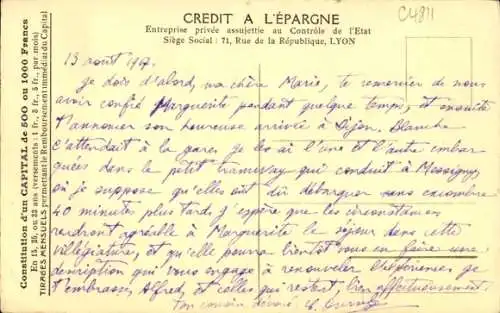 CREDIT A L'ÉPARGNE
Entreprise privée assujettie au Contrôle de l'Etat
Siège Social : 71, Rue de la République, LYON
C4811
Constitution d'un CAPITAL de 500 ou 1000 Francs
En 15, 25, ou 33 ans (versements : 1 fr., 3 fr., 5 fr., par mois)
TIRAGES MENSUELS permettant le Remboursement immédiat du Capital
13 août 1907.
Je dois d'abord, ma chère Marie, te remercier de nous
avoir confié Marguerite pendant quelque temps, et ensuite
t'annoncer son heureuse arrivée à Dijon. Blanche
l'attendait à la gare, je les ai l'une et l'autre embar
quées dans le petit tramway qui conduit à Messigny
où je suppose qu'elles ont dû débarquer sans encombre
40 minutes plus tard. J'espère que les circonstances
rendront agréable à Marguerite le séjour dans cette
villégiature, et qu'elle pourra bientôt vous en faire une
description qui vous engage à renouveler l'expérience. Je
t'embrasse, Alfred, et celles qui restent, bien affectueusement.
Ton cousin dévoué